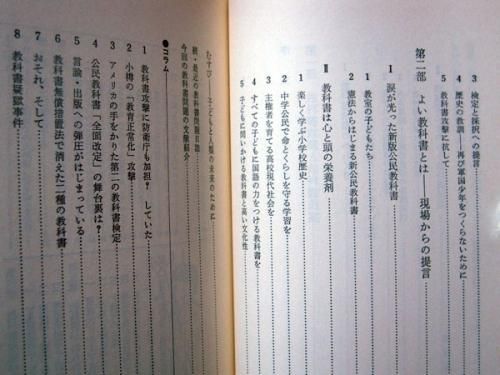 3 検定と採択への提言
4 歴史の教訓――再び軍国少年をつくらないために
5 教科書攻撃に抗して
第二部 よい教科書とは――現場からの提言
Ⅰ 涙が光った新版公民教科書
1 教室の子どもたち
2 憲法からはじまる新公民教科書
Ⅱ 教科書は心と頭の栄養剤
1 楽しく学ぶ小学校歴史
2 中学公民で命とくらしを守る学習を
3 主権者を育てる高校現代社会を
4 すべての子どもに国語の力をつける教科書を
5 子どもに問いかける教科書と高い文化性
むすび 子どもと人類の未来のために
続・最近の教科書問題日誌
今回の教科書問題の文献紹介
●コラム
1 教科書攻撃に防衛庁も加担? していた
2 小樽の「教育正常化」攻撃
3 アメリカの手をかりた第二の教科書検定
4 公民教科書「全面改定」の舞台裏は?
5 言論・出版への弾圧がはじまっている
6 教科書無償措置法で消えた二種の教科書
7 おそれ、そして
8 教科書疑獄事件